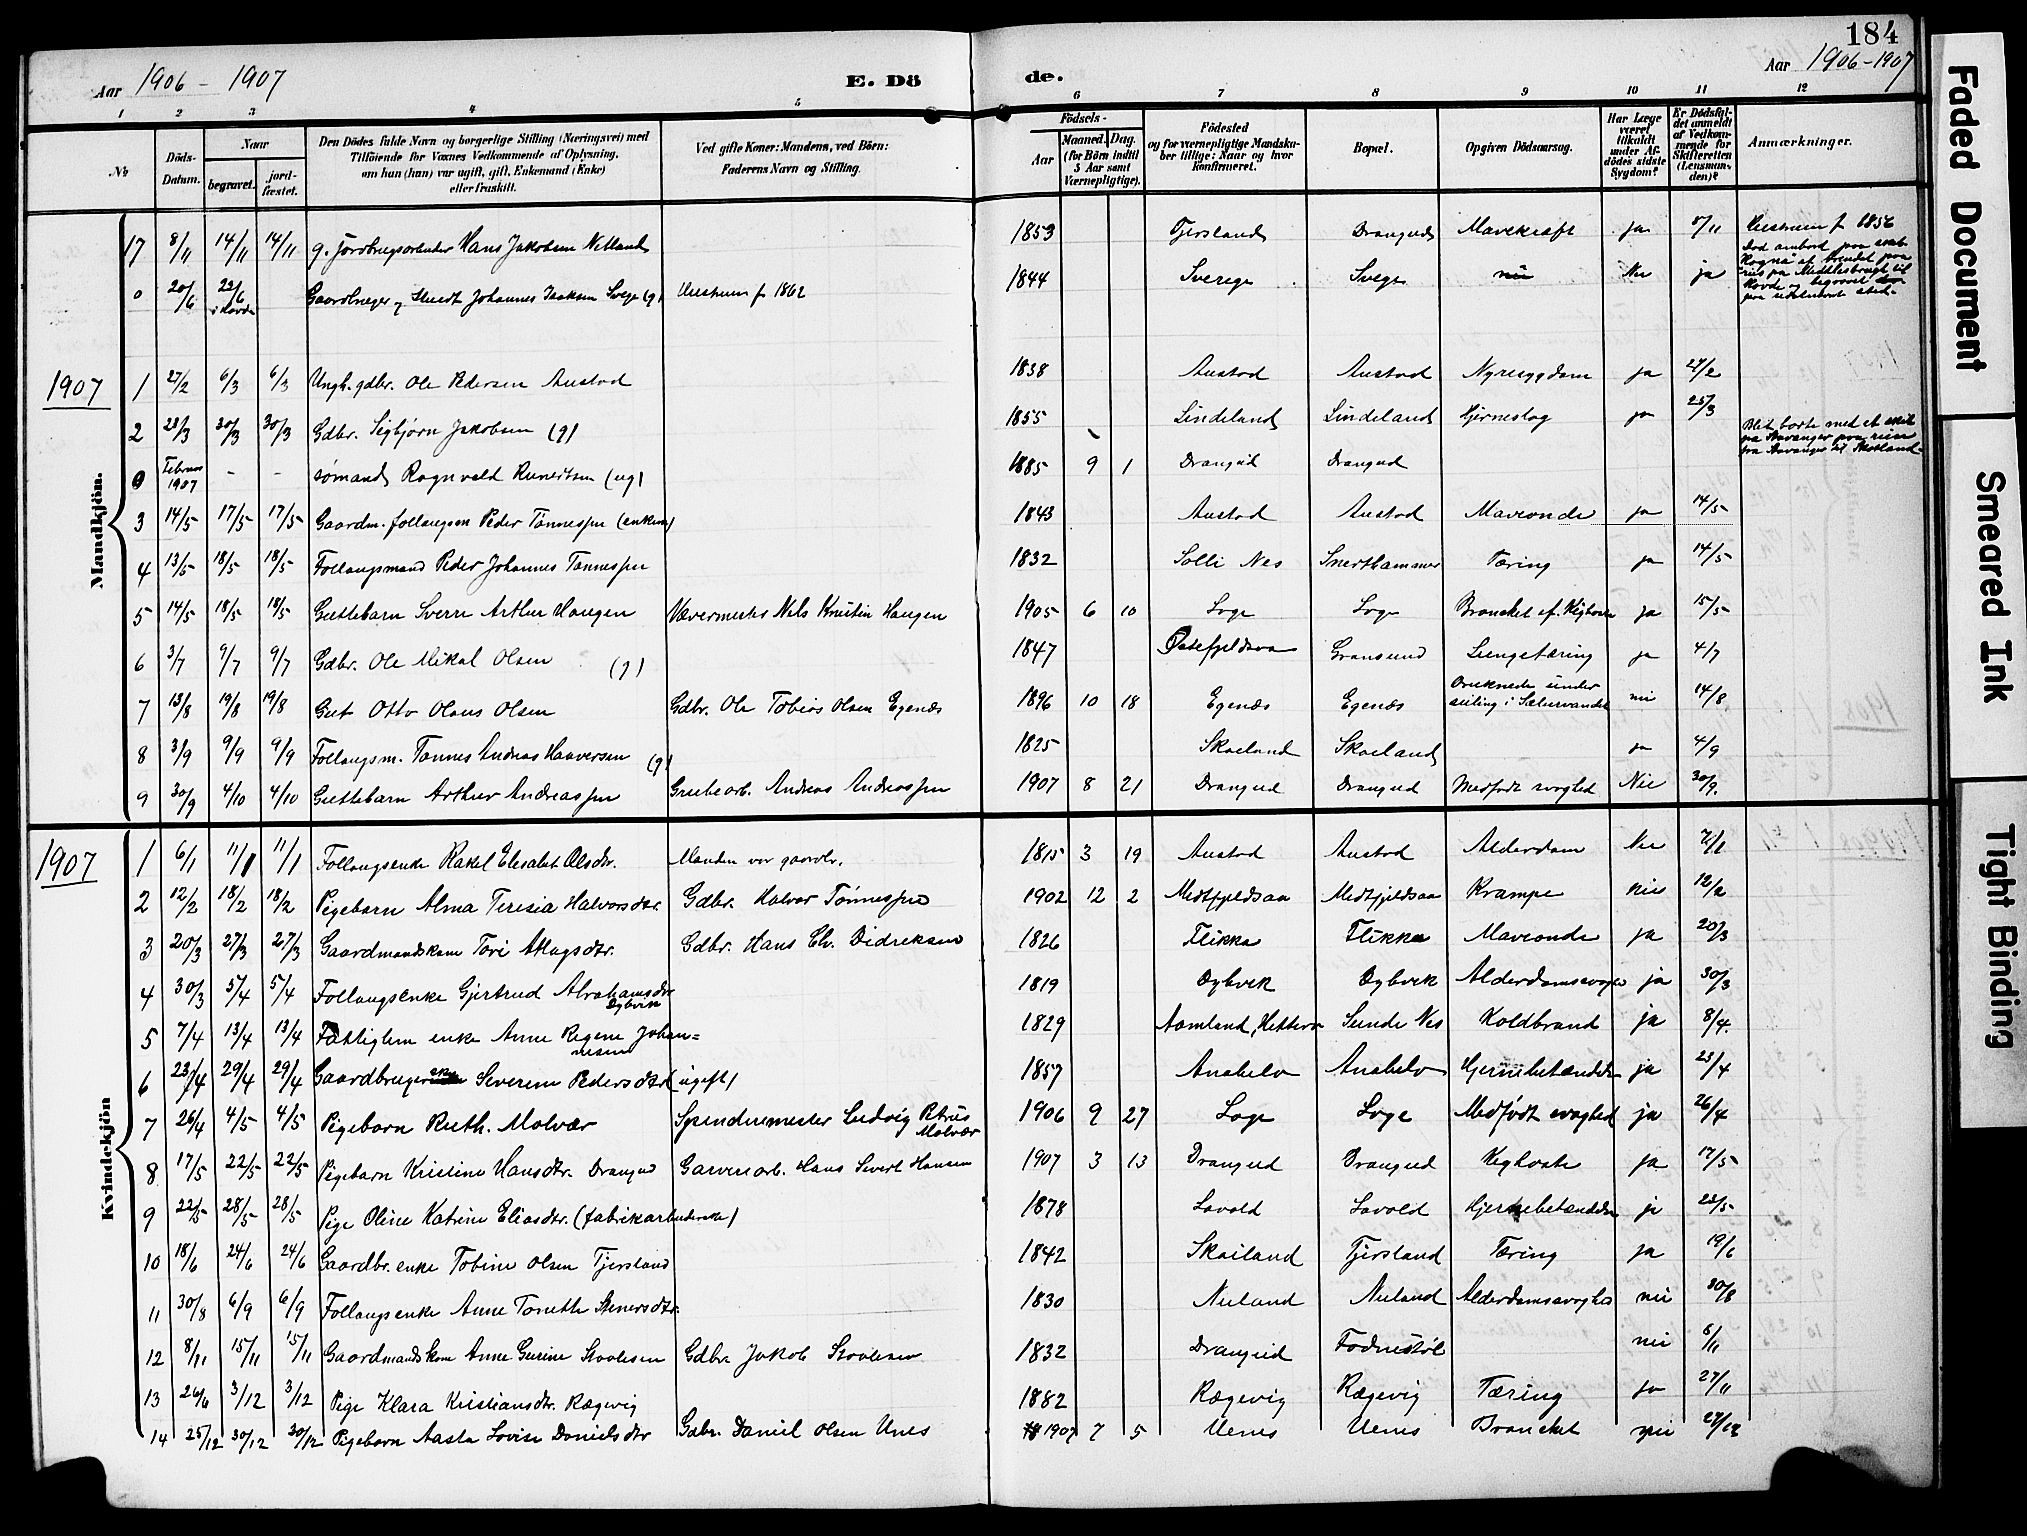 184
Aar 1906 - 1907
E. Dö
de.
Aar 1906-1907
1 2 3 4 5 6 7 8 9 10 11 12
No
Döds-Datum.
Naar
begravet.
jord-fæstet.
Den Dödes fulde Navn og borgerlige Stilling (Næringsvei) med
Tilföiende for Voxnes Vedkommende af Oplysning,
om hun (han) var ugift, gift, Enkemand (Enke)
eller fraskilt.
Ved gifte Koner: Mandens, ved Börn:
Faderens Navn og Stilling.
Födsels-
Aar
Maaned. Dag.
(for Börn indtil
5 Aar samt
Værnepligtige).
Födested
og for værnepligtige Mandska-
ber tillige: Naar og hvor
konfirmeret.
Bopæl.
Opgiven Dödsaarsag.
Har Læge
været
tilkaldt
under Af-
dödes sidste
Sygdom?
Er Dödsfal-
det anmeldt
af Vedkom-
mende for
Skifteretten
(Lensman-
den)?
Anmærkninger.
Mandkjön.
17 8/11 14/11 14/11 g. Jordbrugsarbeider Hans Jakobsen Netland 1853 Tjersland Drangeid Mavekræft ja 8/11
0 20/6 22/6 Johannes Isaksen Svege (g) 1862 1844 Sverege Svege nei Nei ja
1907
1 27/2 6/3 6/3 Ungk. gdbr. Ole Pedersen Austad 1838 Austad Austad Nyresygdom ja 27/2
2 23/3 30/3 30/3 Gdbr. Sigbjørn Jakobsen (g) 1855 Lindeland Lindeland Hjerneslag ja 25/3
0 Februar 1907 - - sømand Ragnvald Reinertsen (ug) 1885 9 1 Drangeid Drangeid
Blit borte med et skib
fra Stavanger paa reise
fra Stavanger til Skotland.
3 14/5 17/5 17/5 Gaardm. follaugsm Peder Tønnessen (enkem) 1843 Austad Austad Maveonde ja 14/5
4 13/5 18/5 18/5 Follaugsmand Peder Johannes Tønnessen 1832 Solli Nes Tæring ja 14/5
5 14/5 18/5 18/5 Guttebarn Sverre Arthur Haugen Vævermester Nils Haugen 1905 6 10 Loge Loge Bronchit ef. Kighoste ja 15/5
6 3/7 9/7 9/7 Gdbr. Ole Mikal Olsen (g) 1847 Gransund Lungetæring ja 4/7
7 13/8 19/8 19/8 Gut Otto Olaus Olsen Gdbr. Ole Tobias Olsen Egenæs 1896 10 18 Egenæs Egenæs Druknede under seiling i nei 14/8
8 3/9 9/9 9/9 Follaugsm. Tønnes Andreas Haaversen (g) 1825 Skaeland Skaeland ja 4/9
9 30/9 4/10 4/10 Guttebarn Arthur Andreassen Grubearb. Andreas Andreassen 1907 8 21 Drangeid Drangeid Medfødt svaghed Nei 30/9.
Kvindekjön
1907
1 6/1 11/1 11/1 Follaugsenke Rakel Elisabet Olsdtr. Manden var gaardbr. 1815 3 19 Austad Austad Alderdom Nei 7/1
2 12/2 18/2 18/2 Pigebarn Alma Teresia Halvorsdtr. Gdbr. Halvor Tønnessen 1902 12 2 Medtfjeldsaa Medtfjeldsaa Krampe nei 12/2
3 20/3 27/3 27/3 Gaardmandskone Tori Aslagsdtr. Gdbr. Hans Didriksen 1826 Flikke Flikke Maveonde ja 20/3
4 30/3 5/4 5/4 Follaugsenke Gjertrud Abrahamsdtr Øybvik 1819 Øybvik Øybvik ja 30/3
5 7/4 13/4 13/4 Fattiglem enke Anne Regine Johan=
nesen 1829 Aamland, Sunde Nes Koldbrand ja 8/4.
6 23/4 29/4 29/4 Gaardbrugerske Severine Pedersdtr (ugift) 1857 Anabelø Anabelø ja 23/4
7 26/4 4/5 4/5 Pigebarn Ruth. Molvær Spindemester Ludvig Petrus
Molvær 1906 9 27 Loge Loge Medfødt svaghed ja 26/4
8 17/5 22/5 22/5 Pigebarn Kristine Hansdtr. Drangeid Garveriarb. Hans Severt Hansen 1907 3 13 Drangeid Drangeid Kighoste ja 17/5
9 22/5 28/5 28/5 Pige Oline Katrine Eliasdtr. (fabrikarbeiderske) 1878 Lavold Lavold ja 23/5
10 18/6 24/6 24/6 Gaardbr. enke Tobine Olsen Tjersland 1842 Skailand Tjersland Tæring ja 19/6
11 30/8 6/9 6/9 Follaugsenke Anne Tonette Stenersdtr. 1830 Nuland Nuland nei 30/8
12 8/11 15/11 15/11 Gaardmandskone Anne Gurine Staalesen Gdbr Jakob Staalesen 1832 Drangeid Fodnestøl nei 8/11
13 26/6 3/12 3/12 Pige Klara Kristiansdtr. Rægevig 1882 Rægevig Rægevig Tæring ja 27/11
14 25/12 30/12 30/12 Pigebarn Aasta Lovise Danielsdtr Gdbr. Daniel Olsen Unes 1907 7 5 Uenes Uenes Bronchit nei 27/12
Faded Document
Smeared Ink
Tight Binding